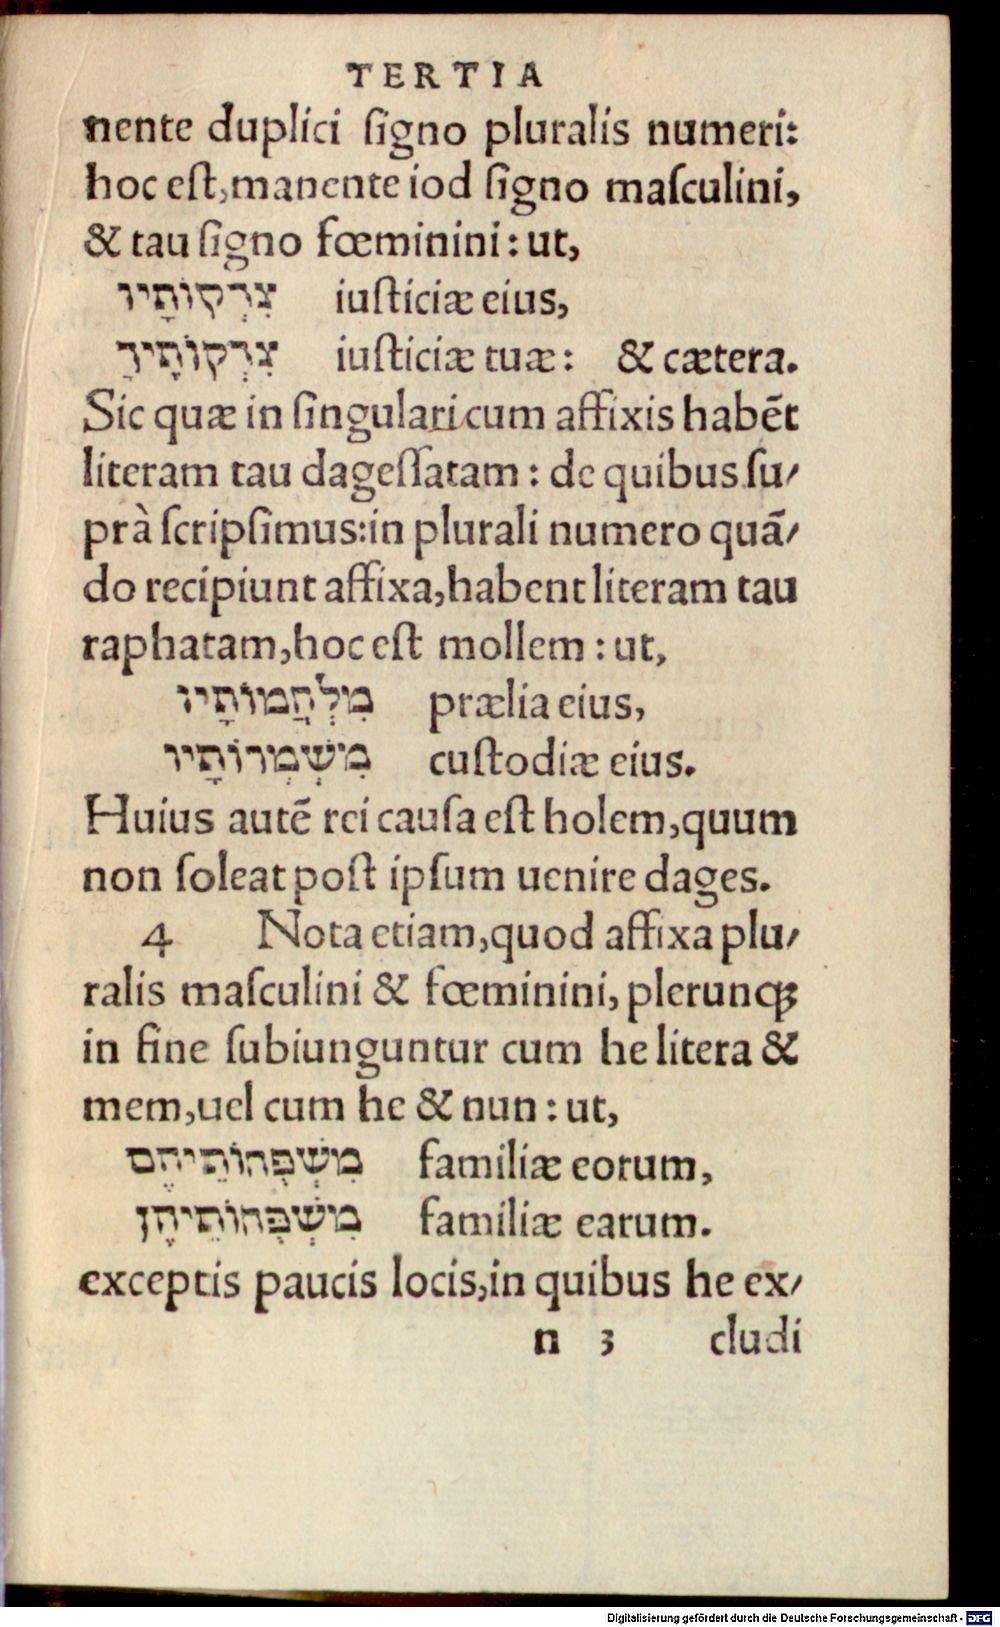 TERTIA
nente duplici ſigno pluralis numeri:
hoc eſt, manente iod ſigno maſculini,
& tau ſigno fœminini: ut,
צִדְקוֹתָיו iuſticiæ eius,
צִדְקוֹתָיךָ iuſticiæ tuæ: & cætera.
Sic quæ in ſingulari cum affixis habēt
literam tau dageſſatam: de quibus ſu/
prà ſcripſimus: in plurali numero quā/
do recipiunt affixa, habent literam tau
raphatam, hoc eſt mollem: ut,
מִלְחֲמוֹתָיו prælia eius,
מִשְׁמְרוֹתָיו cuſtodiæ eius.
Huius autē rei cauſa eſt holem, quum
non ſoleat poſt ipſum uenire dages.
4 Nota etiam, quod affixa plu/
ralis maſculini & fœminini, plerunqꝫ
in fine ſubiunguntur cum he litera &
mem, uel cum he & nun: ut,
מִשְׁפְּחוֹתֵיהֶם familiæ eorum,
מִשְׁפְּחוֹתֵיהֶן familiæ earum.
exceptis paucis locis, in quibus he ex/
n 3 cludi
Digitalisierung gefördert durch die Deutsche Forschungsgemeinschaft - DFG